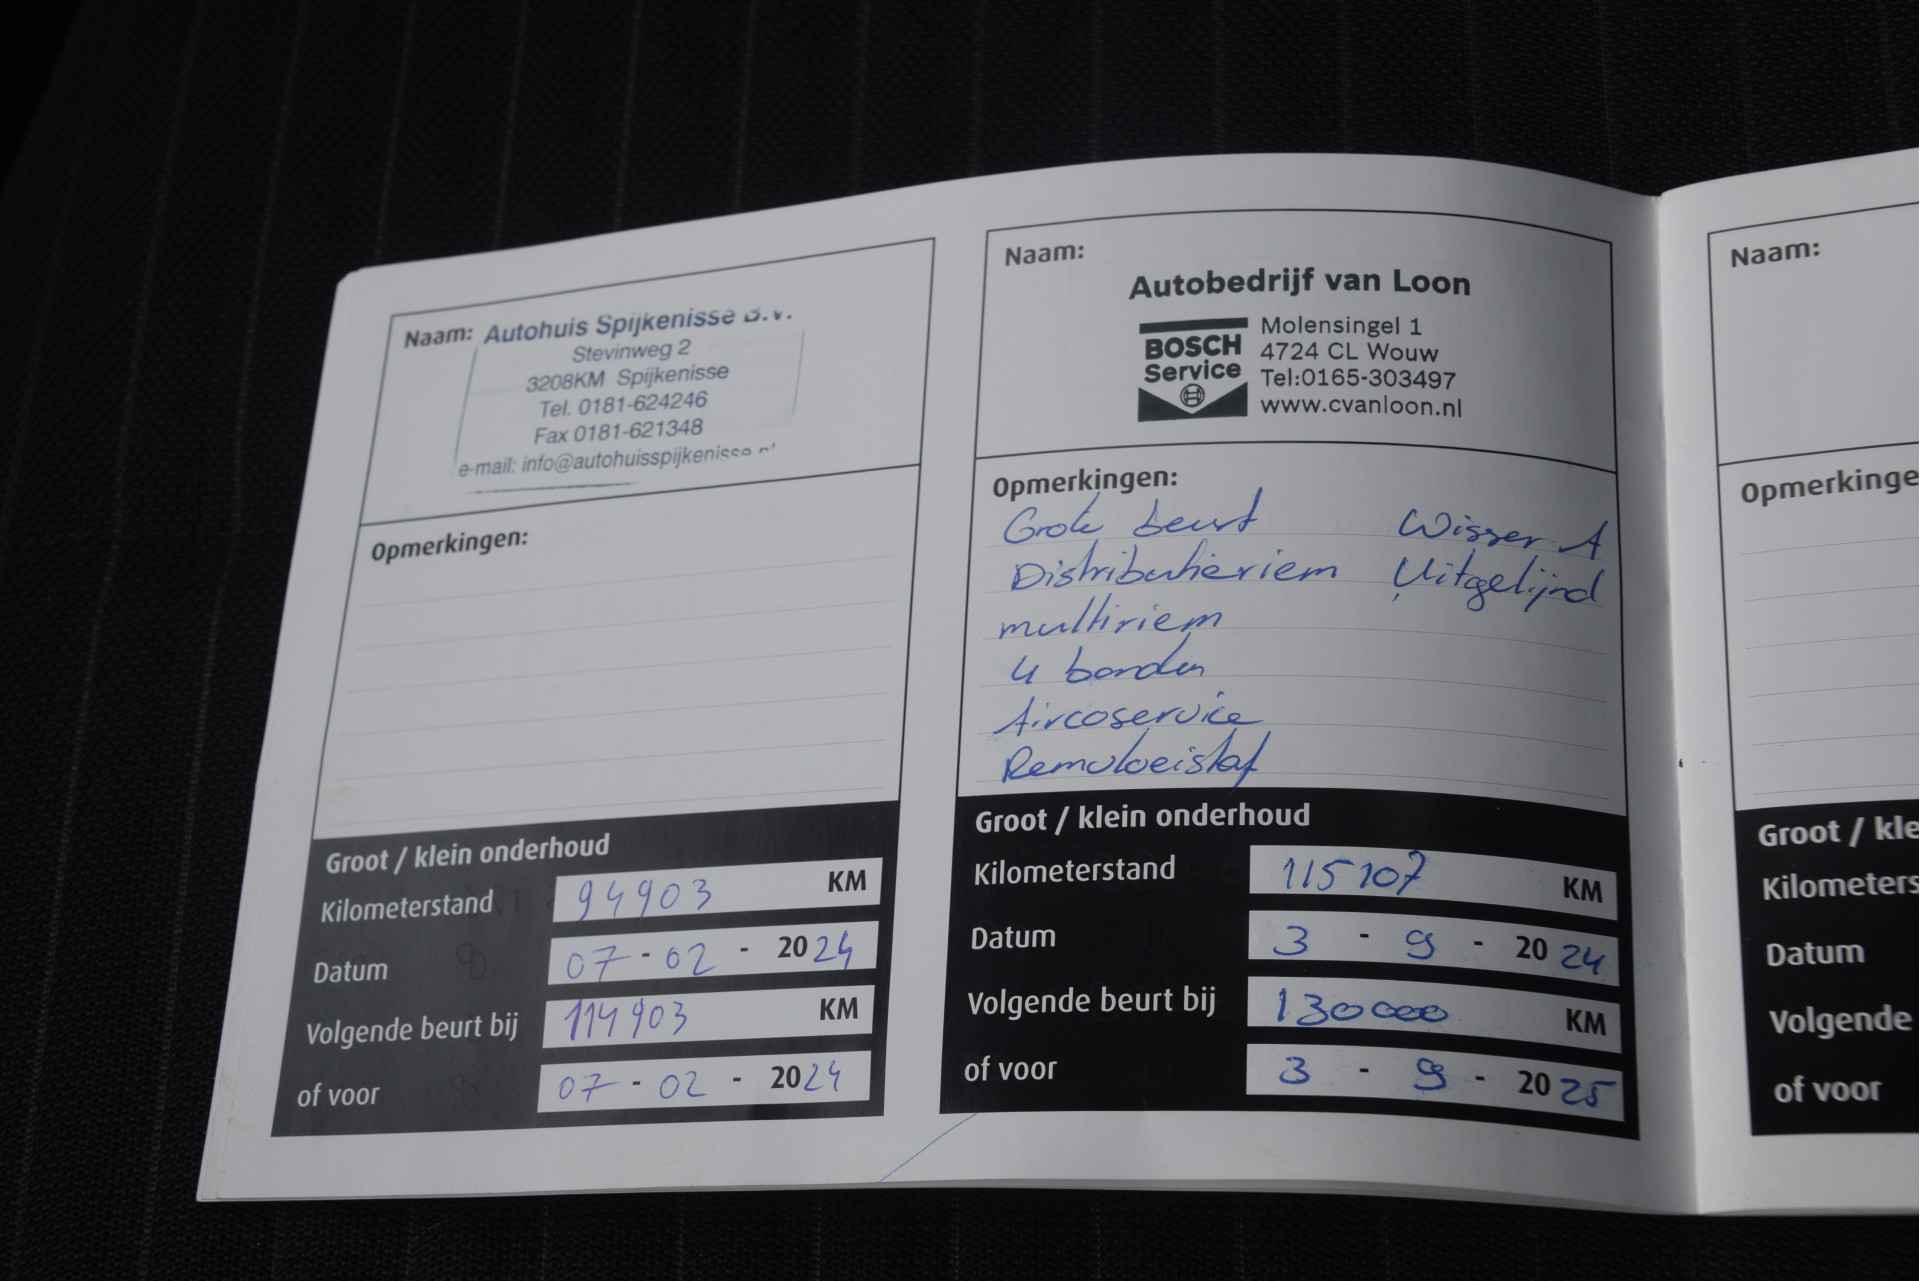 Naam: Autohuis Spijkenisse B.V.
Stevinweg 2
3208KM Spijkenisse
Tel. 0181-624246
Fax 0181-621348
e-mail: info@autohuisspijkenisse.nl
Opmerkingen:
Groot / klein onderhoud
Kilometerstand 94903 KM
Datum 07-02-2024
Volgende beurt bij 114903 KM
of voor 07-02-2024
Naam:
Autobedrijf van Loon
BOSCH
Service
Molensingel 1
4724 CL Wouw
Tel:0165-303497
www.cvanloon.nl
Opmerkingen:
Grote beurt Wisser A
Distributieriem Uitgelijnd
multiriem
4 banden
Aircoservice
Remvloeistof
Groot / klein onderhoud
Kilometerstand 115107 KM
Datum 3 - 9 - 2024
Volgende beurt bij 130000 KM
of voor 3 - 9 - 2025
Naam:
Opmerkinge
Groot / kle
Kilometers
Datum
Volgende
of voor